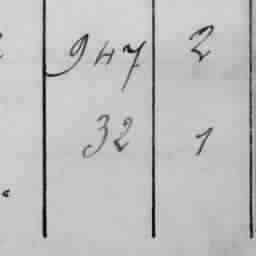 947 2
32 1